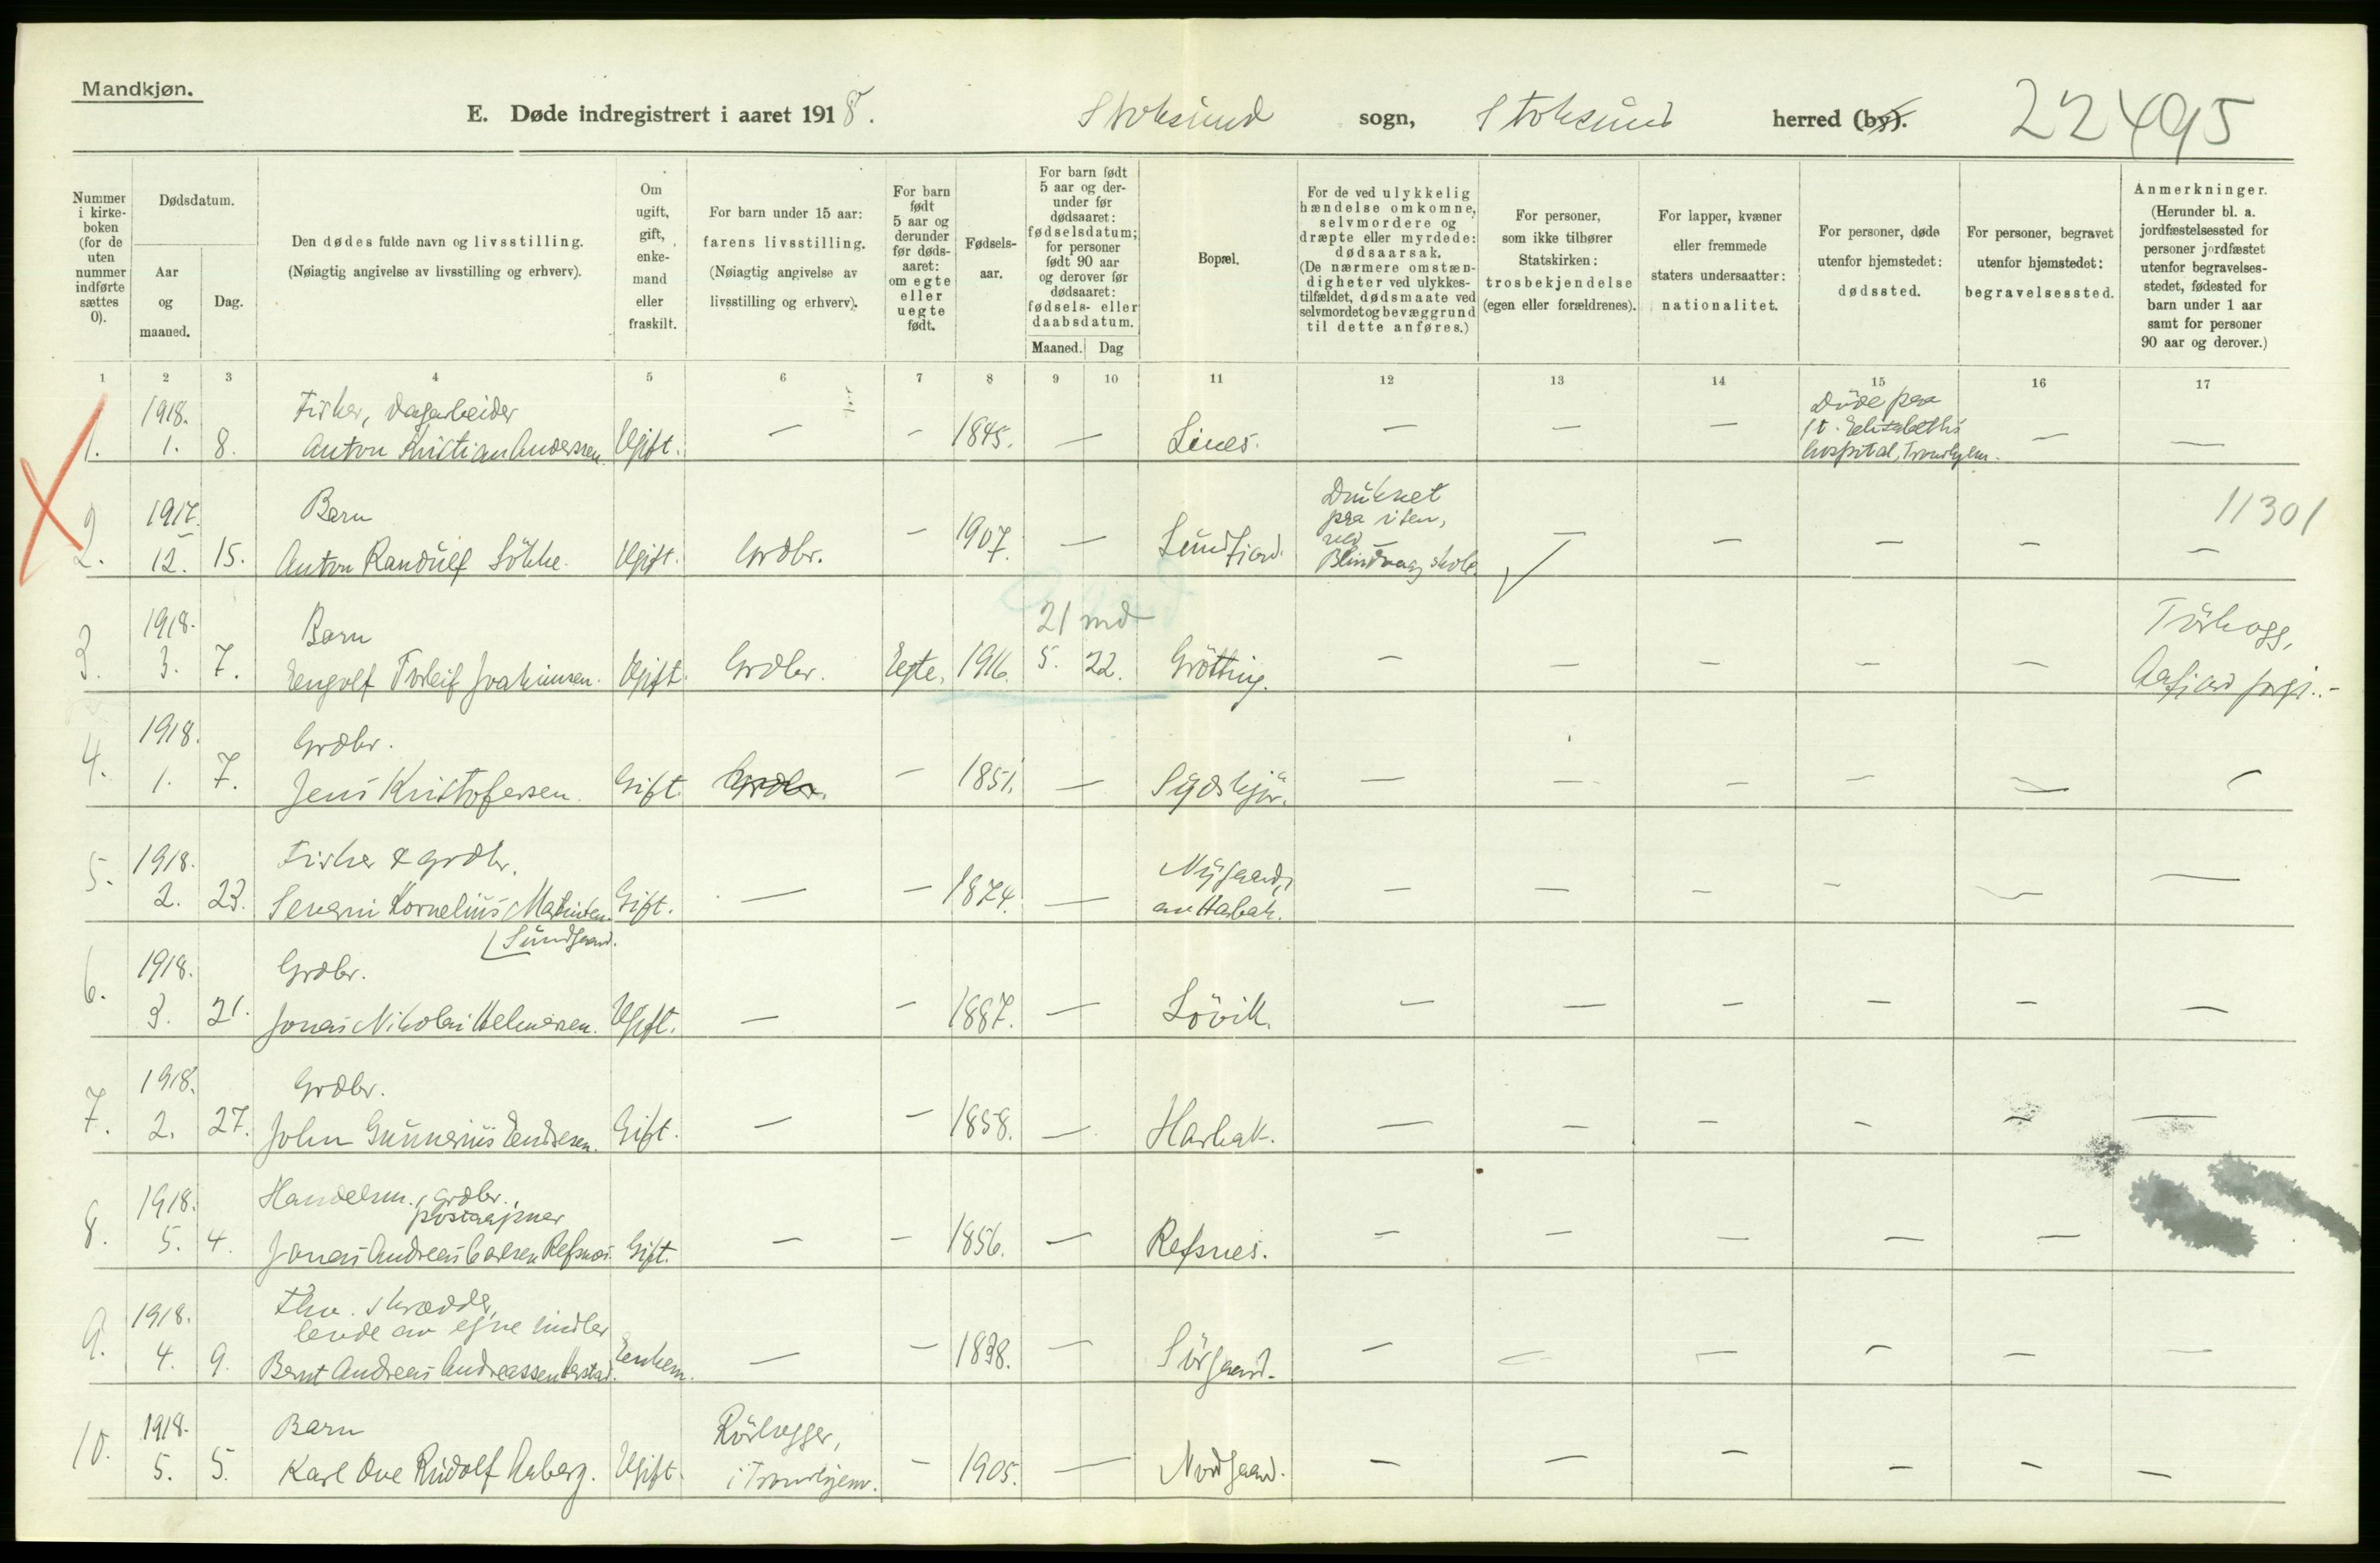 Mandkjøn.
E. Døde indregistrert i aaret 1918. Stoksund sogn, Stoksund herred (by). 22495
Nummer i kirke-boken (for de uten nummer indførte sættes 0).
Dødsdatum.
Aar og maaned.
Dag.
Den dødes fulde navn og livsstilling.
(Nøiagtig angivelse av livsstilling og erhverv).
Om ugift, gift, enke-mand eller fraskilt.
For barn under 15 aar: farens livsstilling.
(Nøiagtig angivelse av livsstilling og erhverv).
For barn født 5 aar og derunder før døds-aaret: om egte eller uegte født.
Fødsels-aar.
For barn født 5 aar og der-under før dødsaaret: fødselsdatum; for personer født 90 aar og derover før dødsaaret: fødsels- eller daabsdatum.
Maaned. Dag
Bopæl.
For de ved ulykkelig hændelse omkomne, selvmordere og dræpte eller myrdede: dødsaarsak.
(De nærmere omstæn-digheter ved ulykkes-tilfældet, dødsmaate ved selvmordet og bevæggrund til dette anføres.)
For personer, som ikke tilhører Statskirken: trosbekjendelse (egen eller forældrenes).
For lapper, kvæner eller fremmede staters undersaatter: nationalitet.
For personer, døde utenfor hjemstedet: dødssted.
For personer, begravet utenfor hjemstedet: begravelsessted.
Anmerkninger.
(Herunder bl. a. jordfæstelsessted for personer jordfæstet utenfor begravelses-stedet, fødested for barn under 1 aar samt for personer 90 aar og derover.)
1 2 3 4 5 6 7 8 9 10 11 12 13 14 15 16 17
1918. Fisker, dagarbeider Døde paa
1. 1. 8. Anton Kristian Anderssen. Ugift. — – 1845. — Lines. — — — St. Elisabeths — —
hospital, Trondhjem.
1917. Barn Druknet 11301
paa isen,
2. 12. 15. Anton Randulf Sökke. Ugift. Grdbr. – 1907. — Sundfjord. ved — — — — —
Blindvaag skole.
1918. Barn 21 md
3. 3. 7. Engolf Torleif Joakimsen. Ugift. Grdbr. Egte. 1916. 5. 22. Grötting. — — — — —
Aafjord prgj.-
1918. Grdbr.
4. 1. 7. Jens Kristofersen. Gift. Grdbr. – 1851. — — — — — — —
1918. Fisker & grdbr. Nygaard,
5. 2. 23. Severin Kornelius Martinsen Gift. — – 1874. — av Harbak. — — — — — —
Sundgaard.
1918. Grdbr.
6. 3. 21. Jonas Nikolai Helmersen. Ugift. — – 1887. — Lövik. — — — — — —
1918. Grdbr.
7. 2. 27. John Gunnerius Endresen. Gift. — – 1858. — Harbak. — — — — — —
1918. Handelsm., grdbr.,
postaapner
8. 5. 4. Jonas Andreas Carlsen Refsnes. Gift. — – 1856. — Refsnes. — — — — —
1918. Fhv. skrædder,
levde av egne midler
9. 4. 9. Bernt Andreas Andreassen Enkem. — – 1838. — Sörgaard. — — — — — —
1918. Barn
10. 5. 5. Karl Ove Rudolf Aaberg. Ugift. i Trondhjem. – 1905. — Nordgaard. — — — — — —